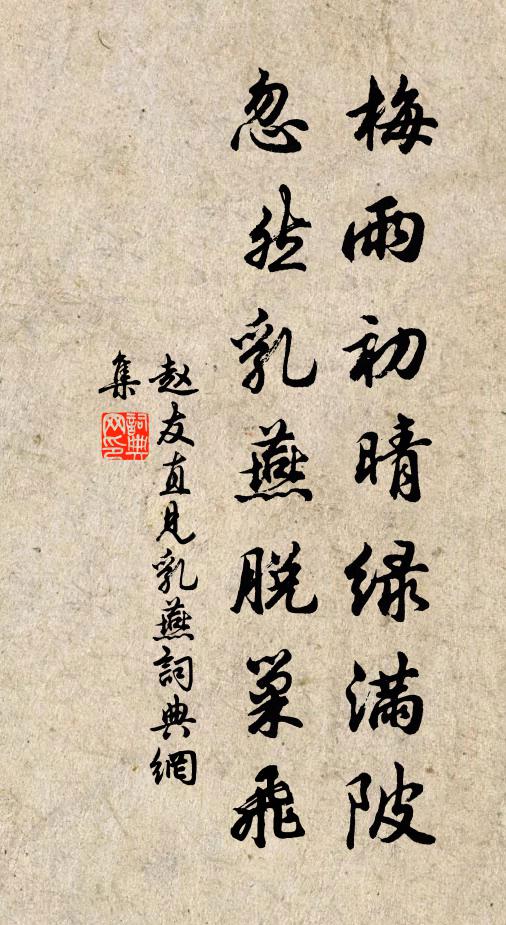 梅雨初晴绿满陂
忽然乳燕脱巢飛
赵友直见乳燕詞典網
集
詞典网印